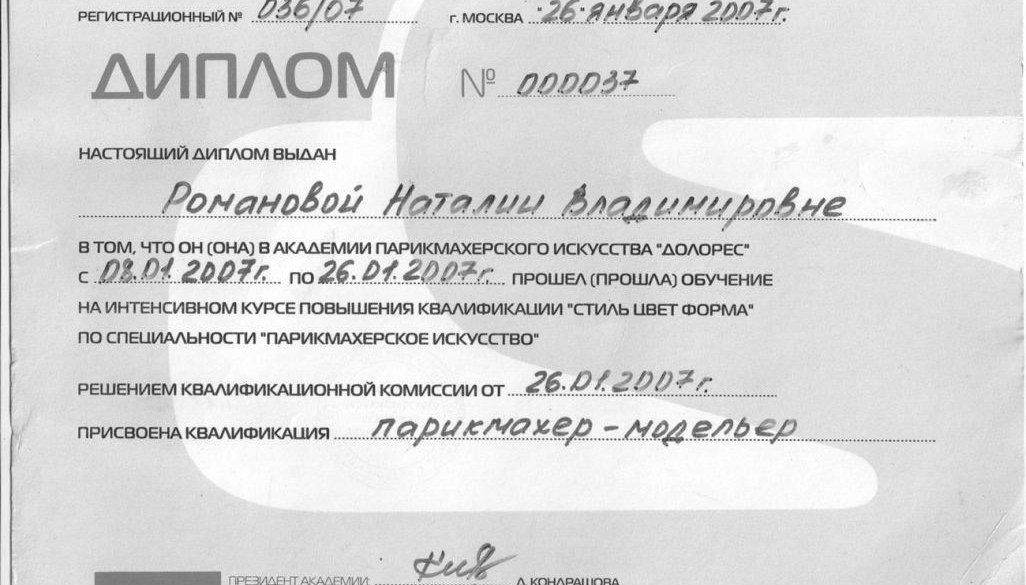 РЕГИСТРАЦИОННЫЙ № 036/07 г. МОСКВА 26 января 2007г.
ДИПЛОМ № 000037
НАСТОЯЩИЙ ДИПЛОМ ВЫДАН
Романовой Наталии Владимировне
В ТОМ, ЧТО ОН (ОНА) В АКАДЕМИИ ПАРИКМАХЕРСКОГО ИСКУССТВА "ДОЛОРЕС"
С 08.01.2007г. ПО 26.01.2007г. ПРОШЕЛ (ПРОШЛА) ОБУЧЕНИЕ
НА ИНТЕНСИВНОМ КУРСЕ ПОВЫШЕНИЯ КВАЛИФИКАЦИИ "СТИЛЬ ЦВЕТ ФОРМА"
ПО СПЕЦИАЛЬНОСТИ "ПАРИКМАХЕРСКОЕ ИСКУССТВО"
РЕШЕНИЕМ КВАЛИФИКАЦИОННОЙ КОМИССИИ ОТ 26.01.2007г.
ПРИСВОЕНА КВАЛИФИКАЦИЯ парикмахер-модельер
ПРЕЗИДЕНТ АКАДЕМИИ Д. КОНДРАШОВА